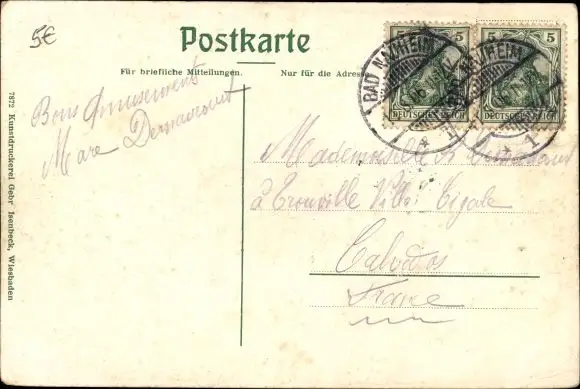 5€
Postkarte
Für briefliche Mitteilungen.
Nur für die Adresse
5 5
5 5
DEUTSCHES REICH
DEUTSCHES REICH
BAD NAUHEIM
BAD NAUHEIM
* 1
* 1
Bons Amusements
Mademoiselle
à Trouville Villa Cigale
Calvados
France
7872 Kunstdruckerei Gebr Isenbeck, Wiesbaden